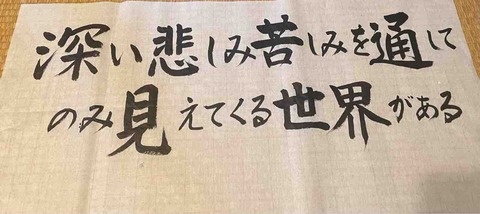 深い悲しみ苦しみを通して
のみ見えてくる世界がある